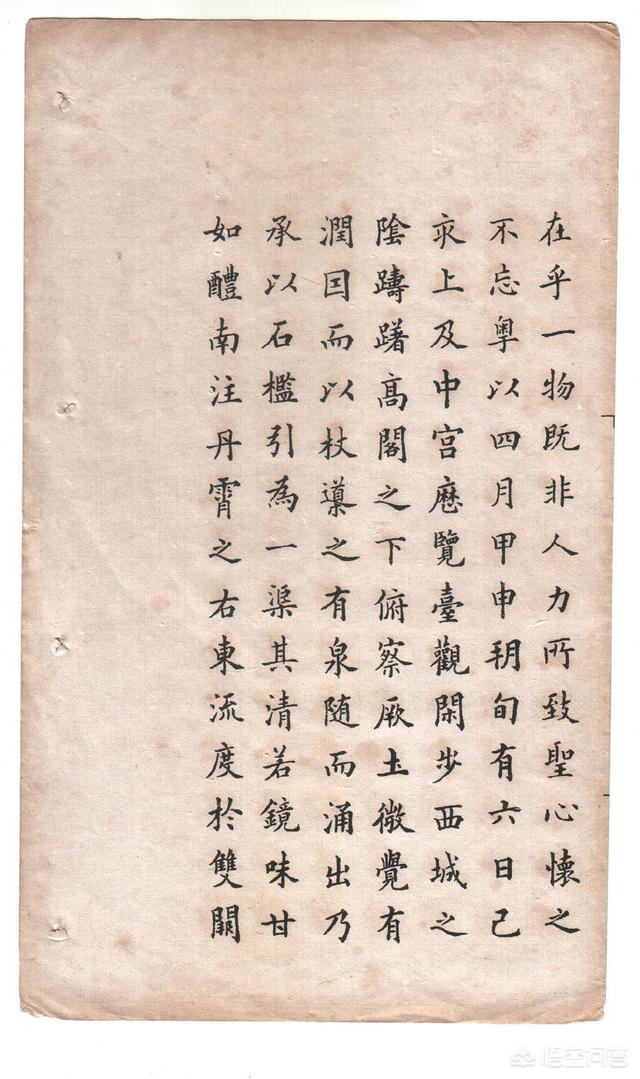 在乎一物既非人力所致聖心懷之
不忘粵以四月甲申朔旬有六日己
亥上及中宮歷覽臺觀閑步西城之
陰躊躇高閣之下俯察厥土微覺有
潤因而以杖導之有泉随而涌出乃
承以石檻引為一渠其清若鏡味甘
如醴南注丹霄之右東流度於雙闕
悟空问答